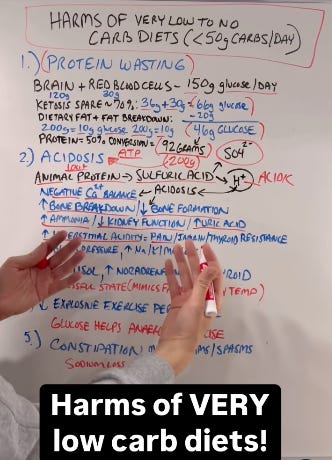 HARMS OF VERY LOW TO NO
CARB DIETS (<50g CARBS/DAY)
1.) (PROTEIN WASTING)
BRAIN + RED BLOOD CELLS ~ 150g glucose/DAY
120g 30g
KETOSIS SPARE ~70%: 36g + 30g = 66g glucose
DIETARY FAT + FAT BREAKDOWN: -20g
200g = 10g glucose 200g = 10g (46g GLUCOSE)
PROTEIN = 50% CONVERSION = 92 GRAMS
(200g)
SO4 2-
2.) ACIDOSIS ATP
ANIMAL PROTEIN → SULFURIC ACID → H+ ACIDIC
NEGATIVE Ca2+ BALANCE ← ACIDOSIS
↑ BONE BREAKDOWN / ↓ BONE FORMATION
↑ AMMONIA / ↓ KIDNEY FUNCTION / ↑ URIC ACID
ACIDITY = PAIN / THYROID RESISTANCE
PRESSURE, ↑ Na/K/M
SOL, ↑ NORADREN ROID
STATE (MIMICS F TEMP)
↓ EXPLOSIVE EXERCISE PE
GLUCOSE HELPS ANAER ISE
5.) CONSTIPATION: M MS/SPASMS
SODIUM LOSS
Harms of VERY
low carb diets!